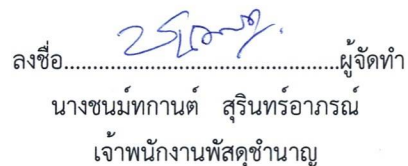 ลงชื่อ..............................................ผู้จัดทำ
นางชนม์ทกานต์ สุรินทร์อาภรณ์
เจ้าพนักงานพัสดุชำนาญ